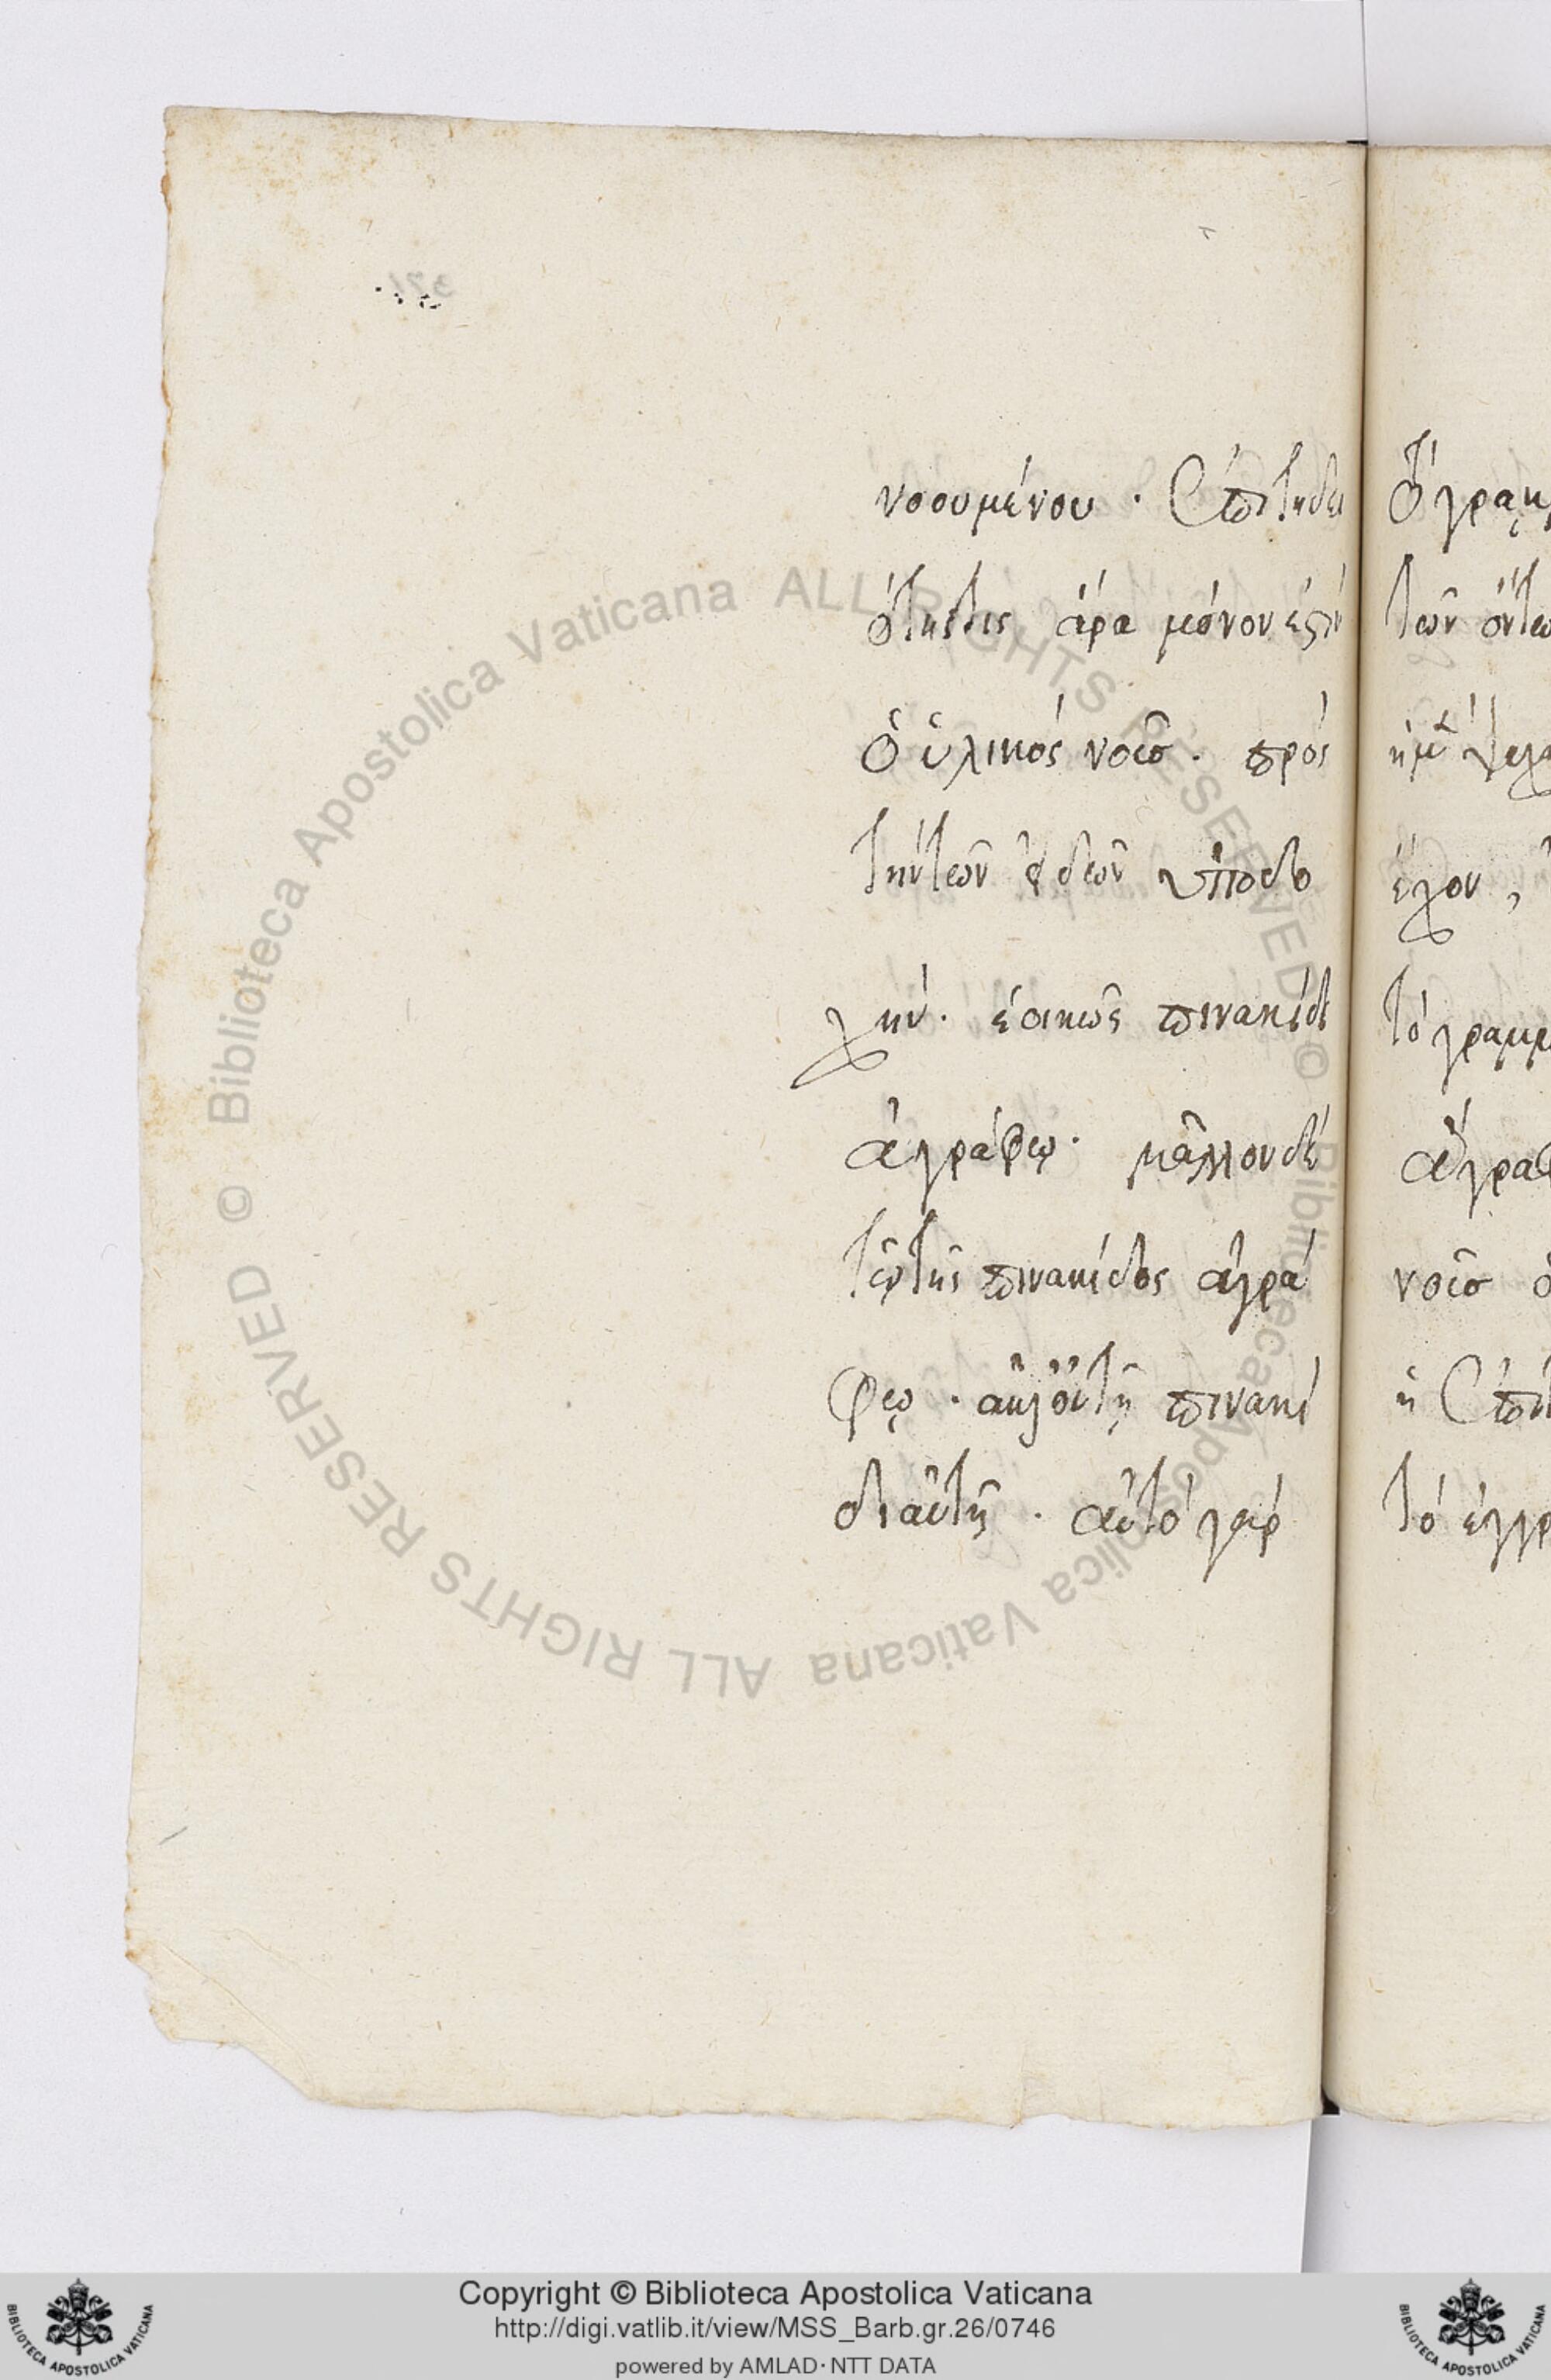 νοουμένου · ἐπιτηδει
ότης τις ἄρα μόνον ἐστὶν
ὁ ὑλικὸς νοῦς · πρὸς
τὴν τῶν εἰδῶν ὑποδο
χὴν · ἐοικὼς πινακίδι
ἀγράφῳ · μᾶλλον δὲ
τῷ τῆς πινακίδος ἀγρά
φῳ · ἀλλ' οὐ τῇ πινακί
δι αὐτῇ · αὐτὸ γὰρ
τῶν ὄντω
ἔχον,
τὸ γραμμ
ἄγραφ
νοῦς ὁ
ἡ ἐπιτ
τὸ ἐγγρ
Copyright © Biblioteca Apostolica Vaticana
http://digi.vatlib.it/view/MSS_Barb.gr.26/0746
powered by AMLAD · NTT DATA
© Biblioteca Apostolica Vaticana ALL RIGHTS RESERVED
© Biblioteca Apostolica Vaticana ALL RIGHTS RESERVED
BIBLIOTECA APOSTOLICA VATICANA
BIBLIOTECA APOSTOLICA VATICANA